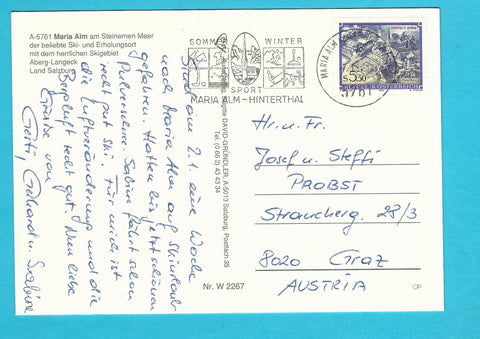 A-5761 Maria Alm am Steinernen Meer
der beliebte Ski- und Erholungsort
mit dem herrlichen Skigebiet
Aberg-Langeck
Land Salzburg
SOMMER WINTER
SPORT
MARIA ALM-HINTERTHAL
MARIA ALM
5761
S 5.50
REPUBLIK ÖSTERREICH
Sind am 2.1. eine Woche
nach Maria Alm auf Skiurlaub
gefahren. Hatten bis jetzt schönen
Pulverschnee. Sabine fährt schon
recht gut Ski. Für mich ist
die Luftveränderung und die
Bergluft recht gut. Nun liebe
Grüße von
Gerti, Gerhard u. Sabine
DAVID-GRÜNDLER, A-5013 Salzburg, Postfach 35
Tel. (0 66 2) 43 43 34
Nr. W 2267
Hr. u. Fr.
Josef u. Steffi
PROBST
Straucherg. 28/3
8020 Graz
AUSTRIA
OP